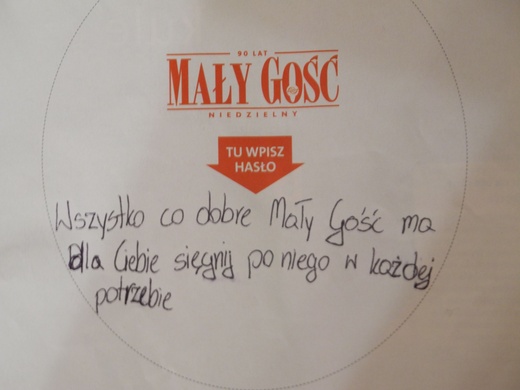 90 LAT
MAŁY GOŚĆ
NIEDZIELNY
TU WPISZ
HASŁO
Wszystko co dobre Mały Gość ma
dla Ciebie sięgnij po niego w każdej
potrzebie